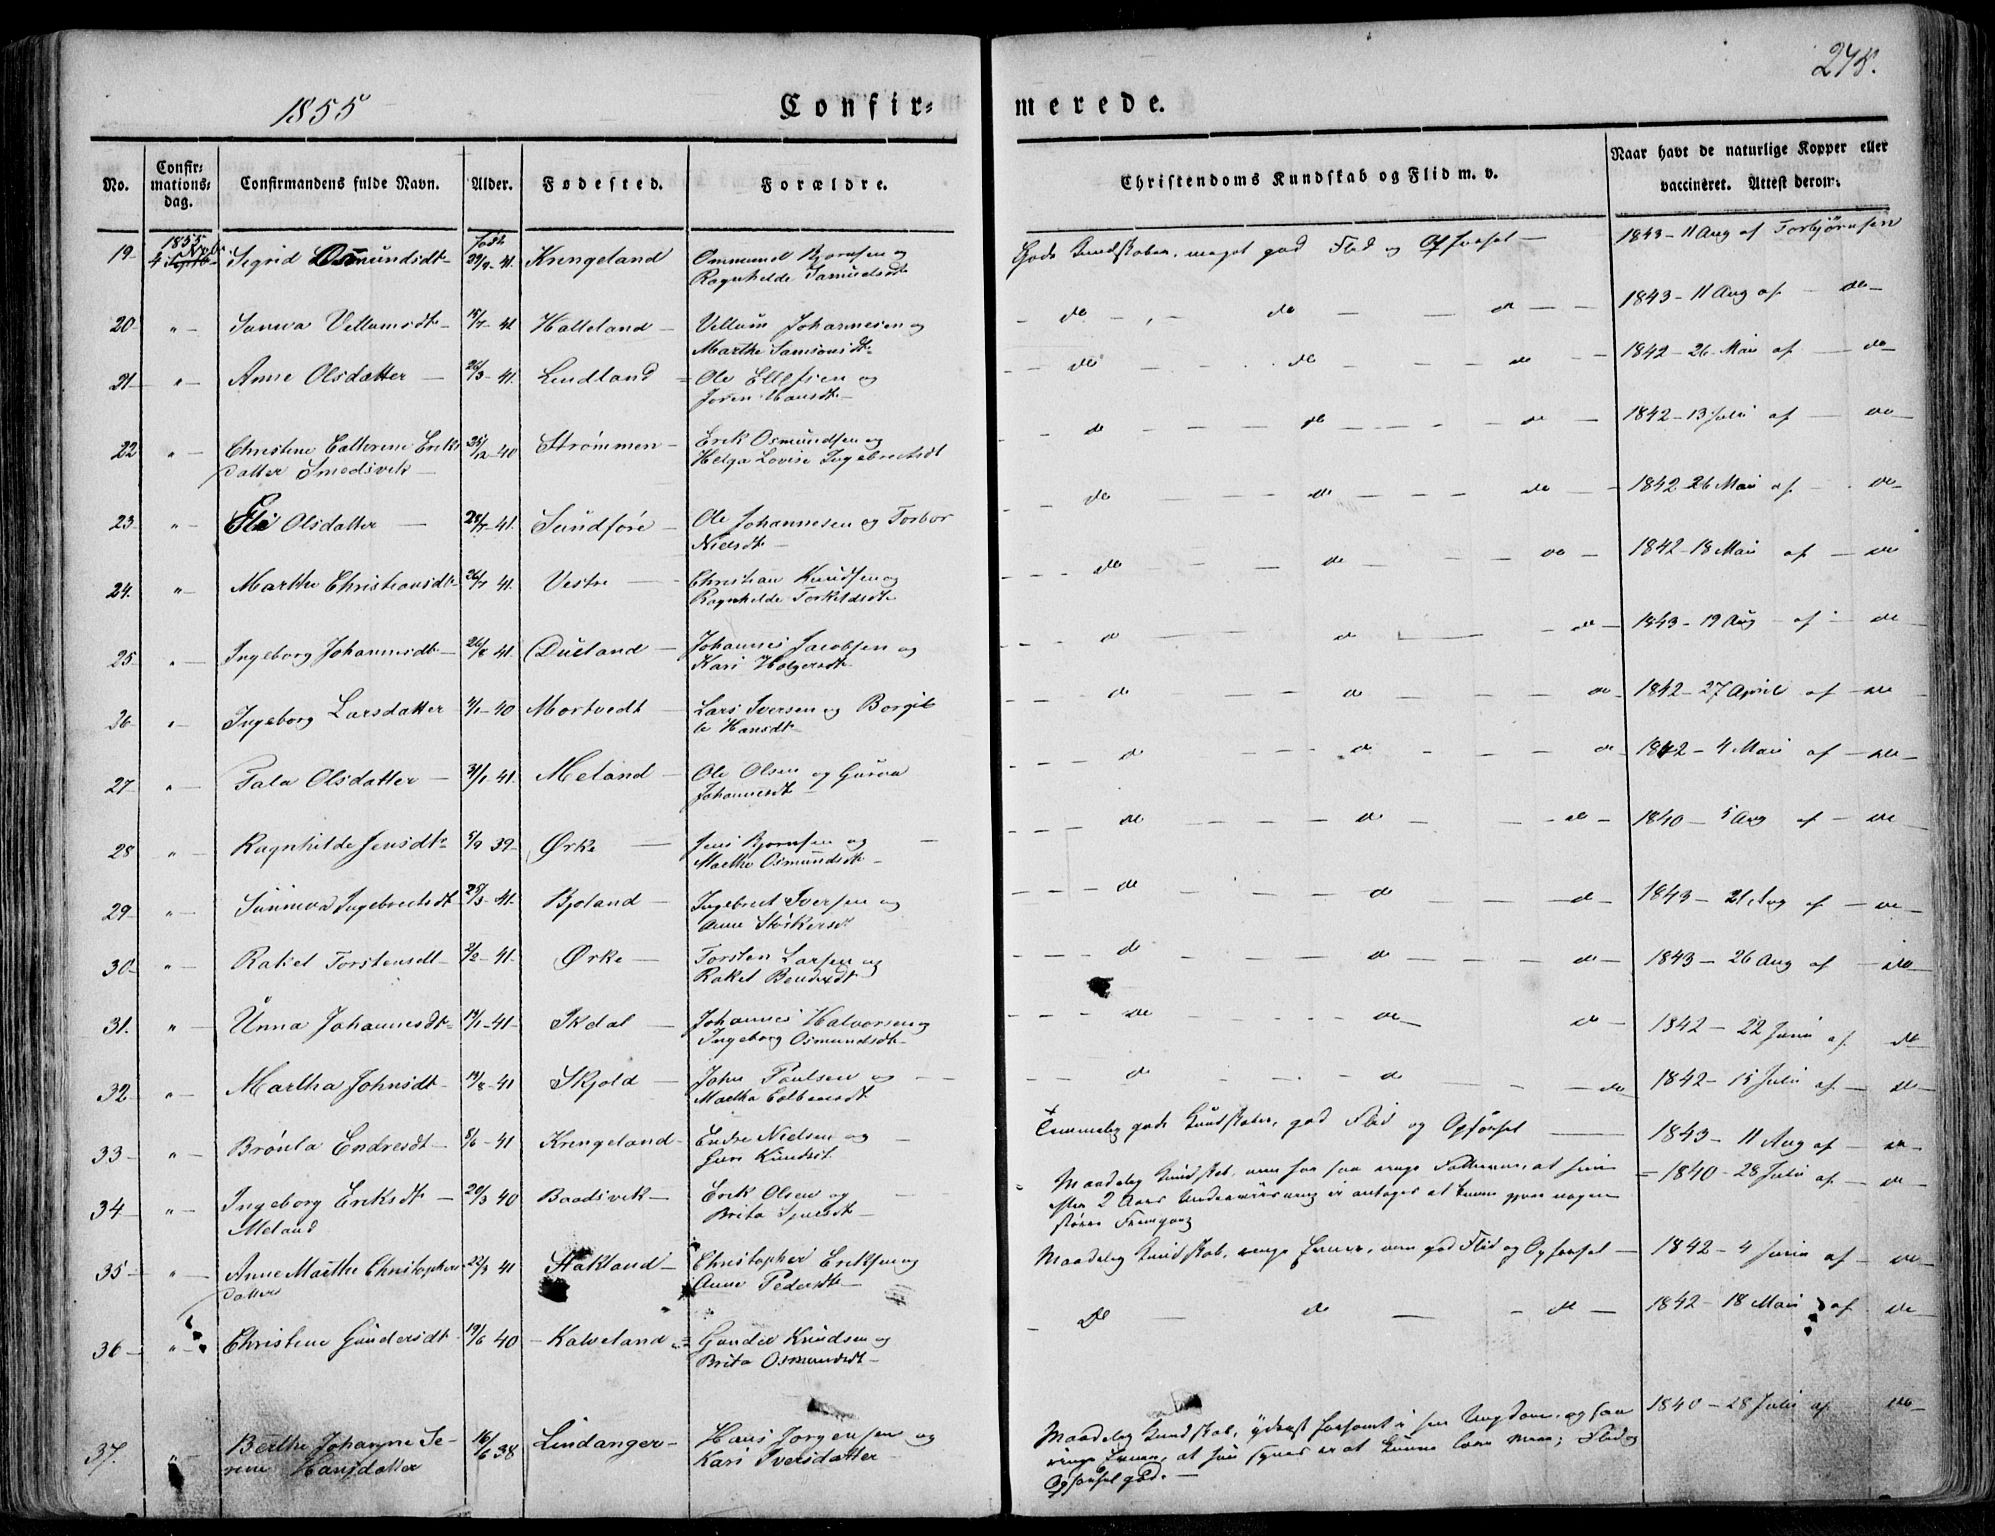 275.
1855
Confir= merede.
No. Confir= mations= dag. Confirmandens fulde Navn. Alder. Fødested. Forældre. Christendoms Kundskab og Flid m. v. Naar havt de naturlige Kopper eller vaccineret. Attest derom.
19 1855 4 Sigrid Osmundsdt født 41. Krengeland Ommund Bjornsen og Ragnhilde Samuelsdt Gode Kundskaber, meget god Flid og Opførsel — 1843 – 11 Aug af Torbjørnsen
20 " Vellumsdt 41 Halleland Vellum Johannesen og Marthe Samsonsdt de de de 1843 – 11 Aug af – de
21 " Anne Olsdatter 26/3 41. Lindland Ole Ellefsen og Joren Hansdt de de de 1842 – 26 Mai af – de
22 " Christine Cathrine Eriks datter Smedsvik 25/12 40 Strømmen Erik Osmundsen og Helga Lovise Ingebretsdt de de de 1842 – 13 Juli af – de
23 " Eli Olsdatter 28/7 41. Sundføre Ole Johannesen og Torbor Nielsdt de de de 1842 – 26 Mai af – de
24. " Marthe Christiansdt 26/7 41. Vestre Christian Knudsen og Ragnhilde Torkildsdt de de de 1842 – 18 Mai af – de
25 " Ingeborg Johannesdt 26/8 41. Dueland Johannes Jacobsen og Kari Holgersdt de de de 1843 – 19 Aug af – de
26 " Ingeborg Larsdatter 40 Mortvedt Lars Iversen og Borgil le Hansdt de de de 1842 – 27 April af – de
27 " Tala Olsdatter 31/1 41. Meland Ole Olsen og Gurva Johannesdt de de de 1842 – 4 Mai af – de
28 " Ragnhilde Jensdt 5/9 39 Ørke Jens Bjornsen og Marthe Osmundsdt de de de 1840 – 5 Aug af – de
29 " Sunneva Ingebretsdt 25/3 41. Bjoland Ingebret Iversen og Anne de de de 1843 – 21 Aug af – de
30 " Rakel Torstensdt 2/2 41. Ørke Torsten Larsen og Rakel Bendixdt de de de 1843 – 26 Aug af – de
31. " Unna Johannesdt 19/1 41 Skdal Johannes Halvorsen og Ingeborg Osmundsdt de de de 1842 – 22 Juni af de
32 " Martha Johnsdt 19/8 41 Skjold John Poulsen og Martha Colbensdt de de de 1842 – 15 Juli af – de
33 " Brønla Endresdt 8/6 41 Krengeland Endre Nielsen og Guro Knudsdt Temmelig gode Kundskaber, god Flid og Opførsel — 1843 – 11 Aug af – de
34 " Ingeborg Eriksdt Meland 20/3 40 Baadsvik Erik Olsen og Brita Sjulsdt Maadelig Kundskab, men har saa ringe at hun efter 2 Aars Underviisning ei antages at kunne gjøre nogen større Fremgang 1840 – 28 Juli af – de
35 " Anne Marthe Christophers datter 22/3 41 Stakland Christopher Eriksen og Anne Pedersdt Maadelig Kundskab, ringe Evner, men god Flid og Opførsel — 1842 – 4 Juni af – de
36 " Christine Gundersdt 19/6 40 Kalveland Gunder Knudsen og Brita Osmundsdt De de de 1842 – 18 Mai af – de
37. " Berthe Johanne Se= rine Hansdatter 16/6 38 Lindanger Hans Jørgensen og Kari Iversdatter Maadelig Kundskab, yderst forsømt i sin Ungdom, og saa ringe Evner, at hun synes ei at kunne lære mere; Flid og Opførsel god. 1840 – 28 Juli af de